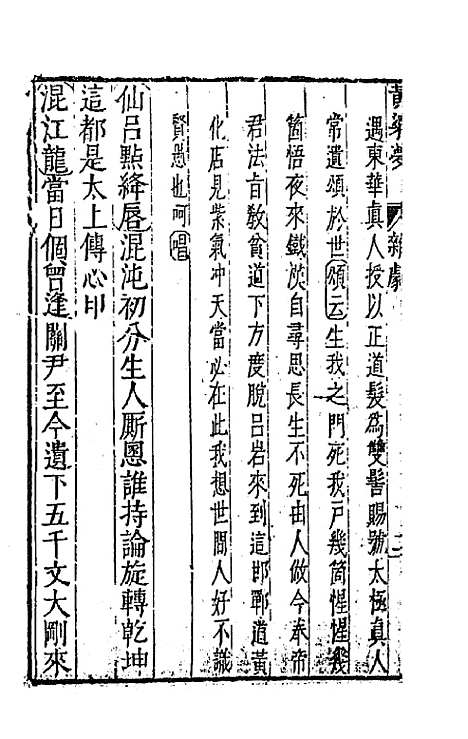 黃粱夢 雜劇 二
遇東華真人授以正道髮爲雙髻賜號太極真人
常遺頌於世頌云生我之門死我戶幾箇惺惺幾
箇悟夜來鐵漢自尋思長生不死由人做今奉帝
君法旨教貧道下方度脫呂岩來到這邯鄲道黃
化店見紫氣冲天當必在此我想世間人好不識
賢愚也呵唱
仙呂點絳唇混沌初分生人廝恩誰持論旋轉乾坤
這都是太上傳心印
混江龍當日個曾逢關尹至今遺下五千文大剛來